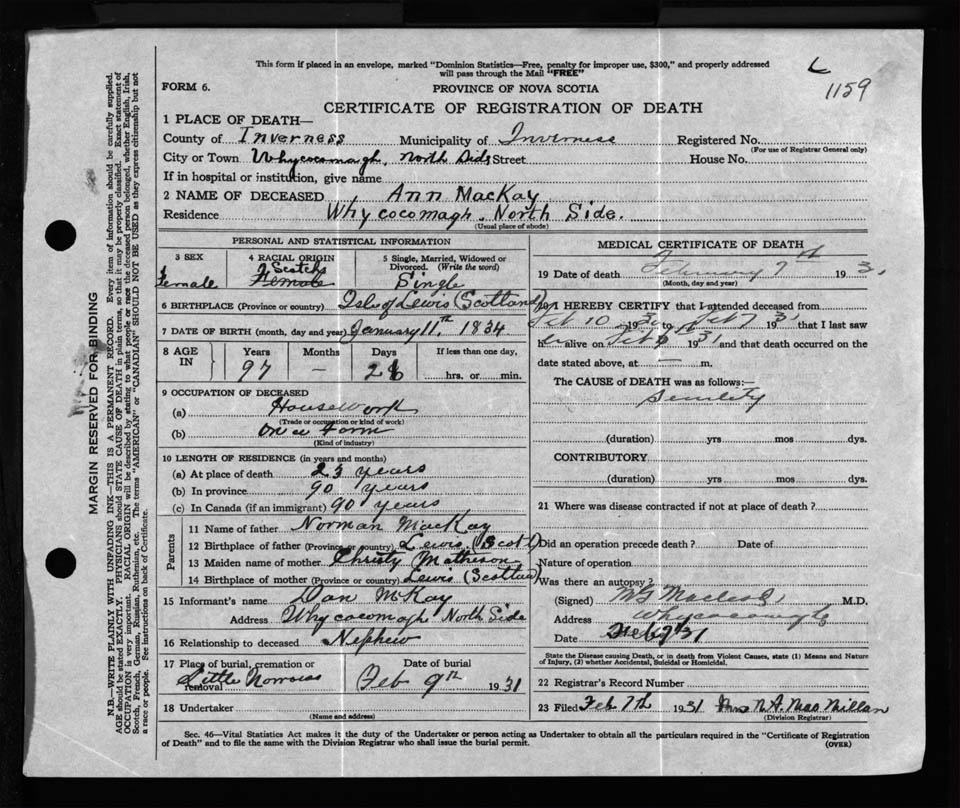 This form if placed in an envelope, marked "Dominion Statistics—Free, penalty for improper use, $300," and properly addressed
will pass through the Mail "FREE"
1159
FORM 6.
PROVINCE OF NOVA SCOTIA
CERTIFICATE OF REGISTRATION OF DEATH
1 PLACE OF DEATH—
County of Inverness Municipality of Inverness Registered No.
(For use of Registrar General only)
City or Town Whycocomagh, North Side Street House No.
If in hospital or institution, give name
2 NAME OF DECEASED Ann MacKay
Residence Whycocomagh. North Side.
(Usual place of abode)
PERSONAL AND STATISTICAL INFORMATION
3 SEX 4 RACIAL ORIGIN 5 Single, Married, Widowed or Divorced. (Write the word)
Female Scotch Female Single
6 BIRTHPLACE (Province or country) Isle of Lewis (Scotland)
7 DATE OF BIRTH (month, day and year) January 11th 1834
8 AGE IN Years Months Days If less than one day,
97 — 26 hrs. or min.
9 OCCUPATION OF DECEASED
(a) Housework
(Trade or occupation or kind of work)
(b) On a Farm
(Kind of industry)
10 LENGTH OF RESIDENCE (in years and months)
(a) At place of death 23 years
(b) In province 90 years
(c) In Canada (if an immigrant) 90 years
Parents
11 Name of father Norman MacKay
12 Birthplace of father (Province or country) Lewis (Scot)
13 Maiden name of mother Christy Matheson
14 Birthplace of mother (Province or country) Lewis (Scotland)
15 Informant's name Dan McKay
Address Whycocomagh North Side
16 Relationship to deceased Nephew
17 Place of burial, cremation or removal Date of burial
Little Narrows Feb 9th 1931
18 Undertaker
(Name and address)
MEDICAL CERTIFICATE OF DEATH
19 Date of death February 7th 1931
(Month, day and year)
20 I HEREBY CERTIFY that I attended deceased from
Feb 10 1930 to Feb 7 1931 that I last saw
her alive on Feb 1931 and that death occurred on the
date stated above, at — m.
The CAUSE OF DEATH was as follows:—
Senility
(duration) yrs mos dys.
CONTRIBUTORY
(duration) yrs. mos dys.
21 Where was disease contracted if not at place of death?
Did an operation precede death? Date of
Nature of operation
Was there an autopsy?
(Signed) MacLeod M.D.
Address Whycocomagh
Date Feb 7 31
State the Disease causing Death, or in death from Violent Causes, state (1) Means and Nature
of Injury, (2) whether Accidental, Suicidal or Homicidal.
22 Registrar's Record Number
23 Filed Feb 7th 1931 Mrs N.A. MacMillan
(Division Registrar)
Sec. 46—Vital Statistics Act makes it the duty of the Undertaker or person acting as Undertaker to obtain all the particulars required in the "Certificate of Registration
of Death" and to file the same with the Division Registrar who shall issue the burial permit.
(OVER)
MARGIN RESERVED FOR BINDING
N.B.—WRITE PLAINLY WITH UNFADING INK—THIS IS A PERMANENT RECORD. Every item of information should be carefully supplied.
AGE should be stated EXACTLY. PHYSICIANS should STATE CAUSE OF DEATH in plain terms, so that it may be properly classified. Exact statement of
OCCUPATION is very important. RACIAL ORIGIN will be described by stating to what people or race the deceased person belonged, whether English, Irish,
Scotch, French, German, Russian, Ruthenian, etc. The terms "AMERICAN" or "CANADIAN" SHOULD NOT BE USED as they express citizenship but not
a race or people. See instructions on back of Certificate.